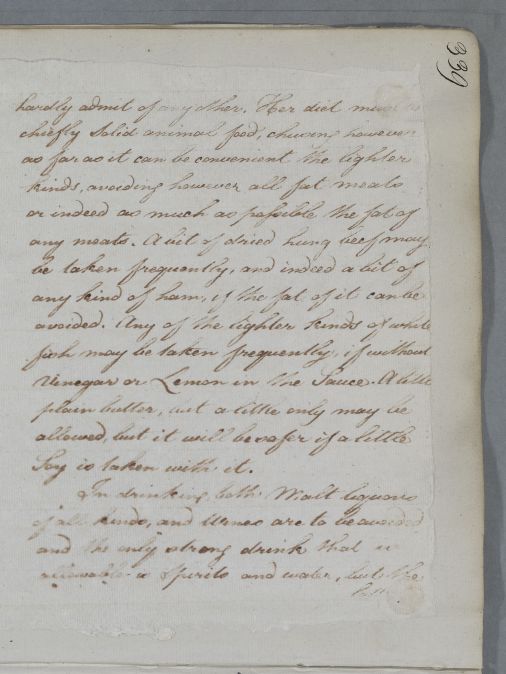 339
hardly admit of any other. Her diet must be
chiefly Solid animal food, chusing however
as far as it can be convenient the lighter
kinds, avoiding however all fat meats
or indeed as much as possible the fat of
any meats. A bit of dried hung beef may
be taken frequently, and indeed a bit of
any kind of ham, if the fat of it can be
avoided. Any of the lighter kinds of white
fish may be taken frequently, if without
Vinegar or Lemon in the Sauce. A little
plain butter, but a little only may be
allowed, but it will be safer if a little
Soy is taken with it.
In drinking, both Malt liquors
of all kinds, and Wines are to be avoided
and the only strong drink that is
allowable is Spirits and water, but the